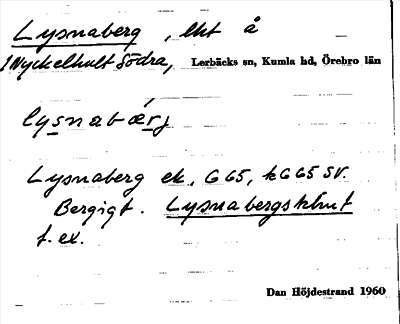 Lysnaberg, lht å
1 Nyckelhult Södra, Lerbäcks sn, Kumla hd, Örebro län
lysnabærj
Lysnaberg ek. G 65, kG 65 SV.
Bergigt. Lysnabergs klint
f. ex.
Dan Höjdestrand 1960